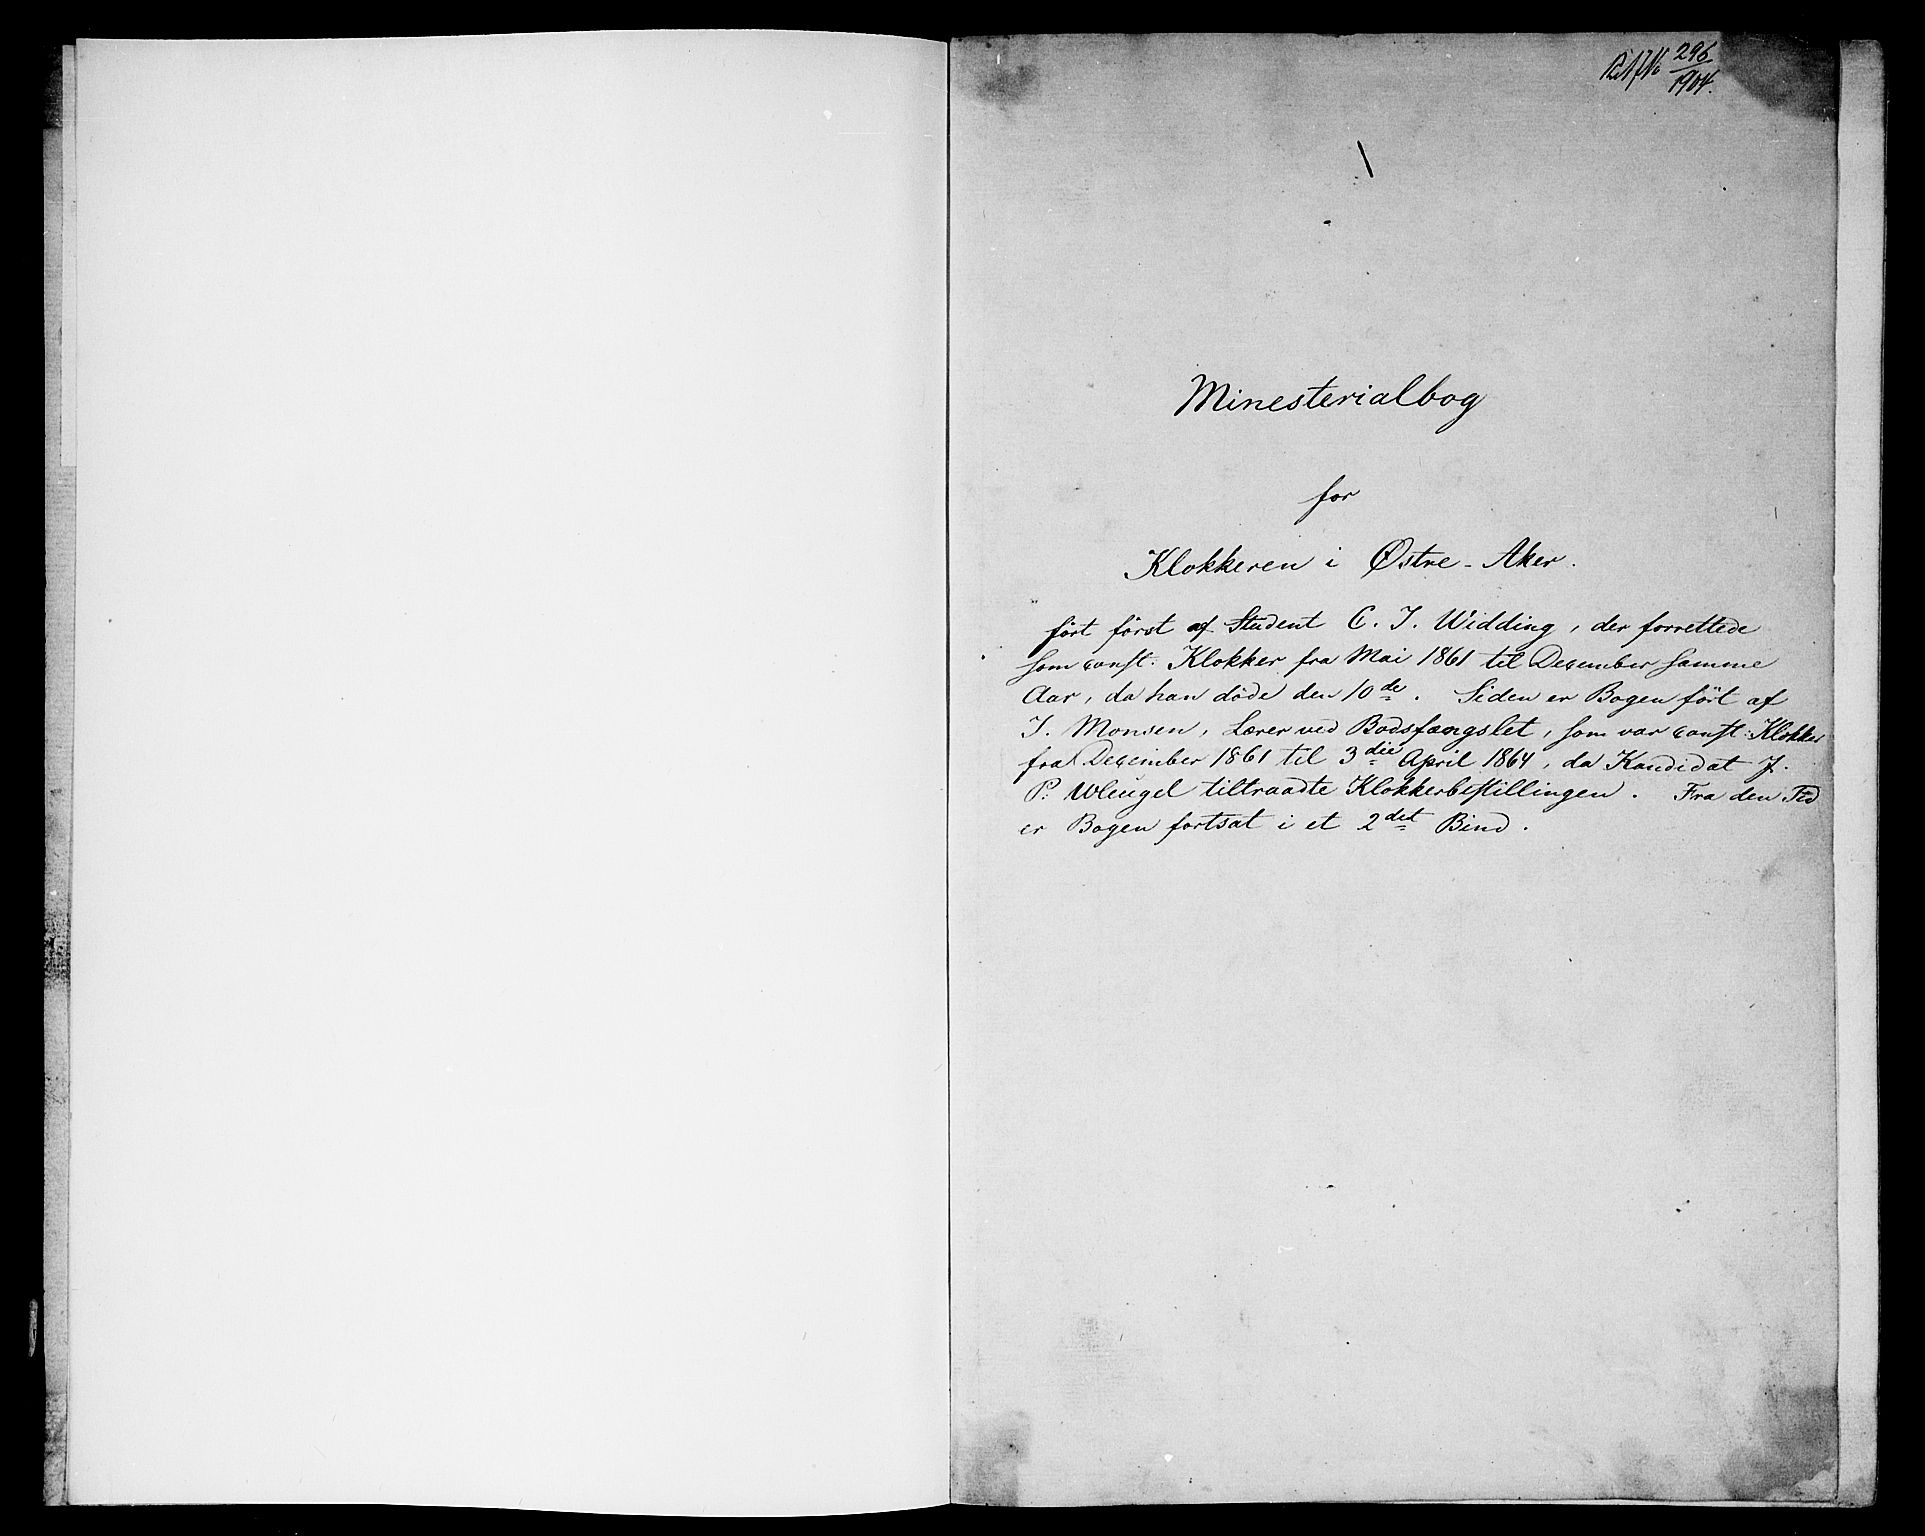 296
1904.
Minesterialbog
for
Klokkeren i Østre - Aker.
ført først af Student C. J. Widding, der forrettede
som const: Klokker fra Mai 1861 til December samme
Aar, da han døde den 10de. Siden er Bogen ført af
J. Monsen, Lærer ved Bodsfængslet, som var const: Klokker
fra December 1861 til 3die April 1864, da Kandidat J.
P. Wleügel tiltraadte Klokkerbestillingen. Fra den Tid
er Bogen fortsat i et 2det Bind.